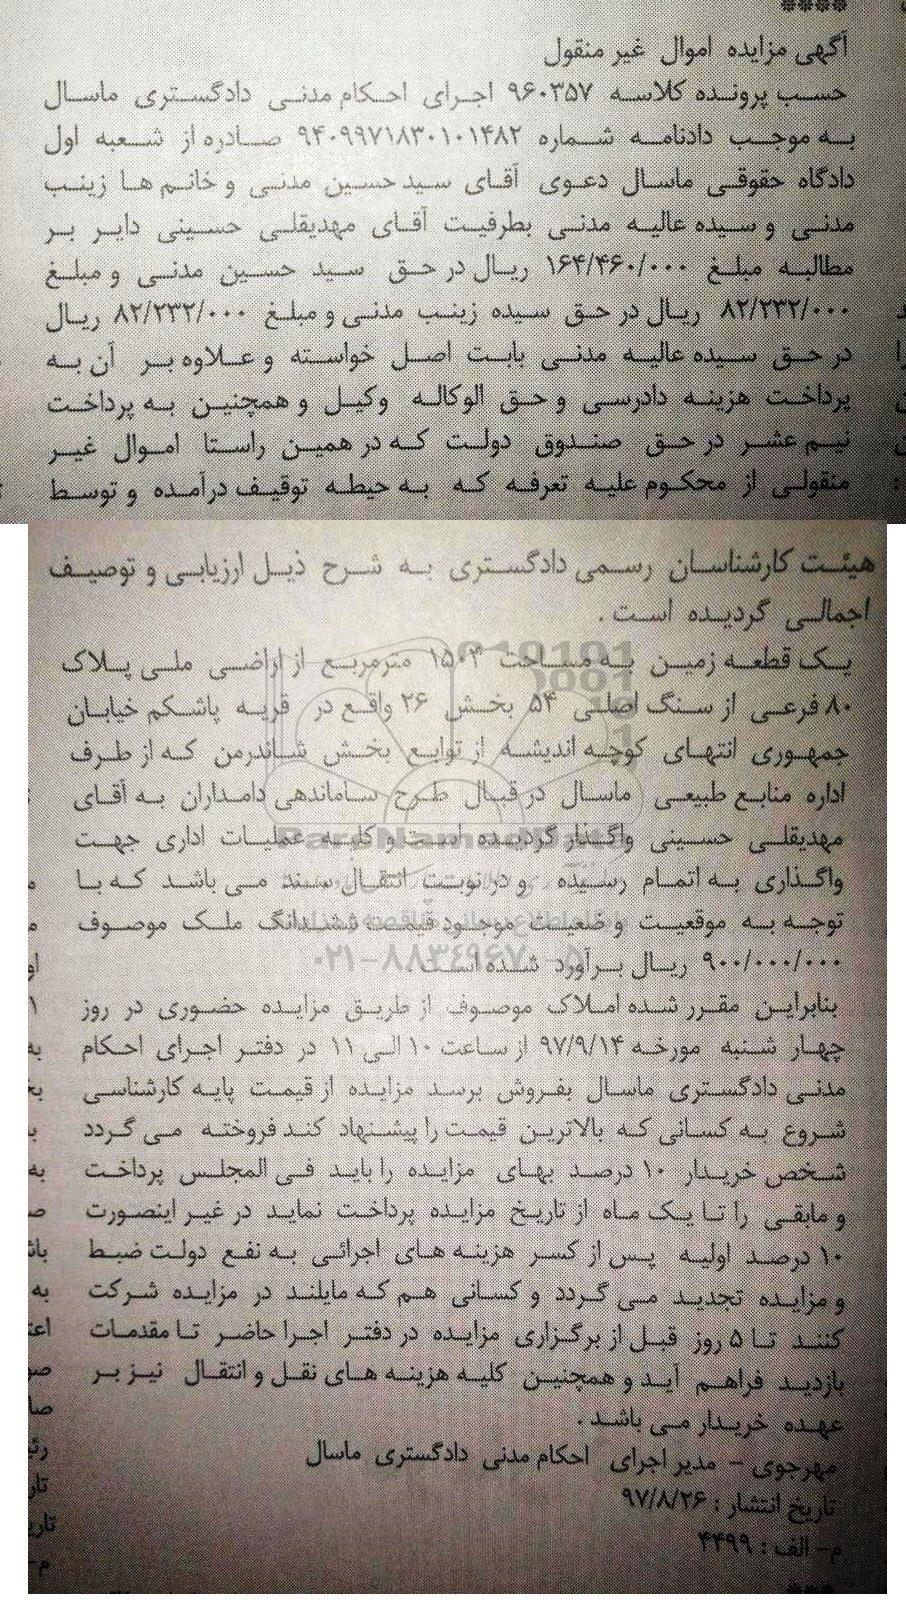 آگهی مزایده اموال غیر منقول
حسب پرونده کلاسه ۹۶۰۳۵۷ اجرای احکام مدنی دادگستری ماسال
به موجب دادنامه شماره ۹۴۰۹۹۷۱۸۳۰۱۰۱۴۸۲ صادره از شعبه اول
دادگاه حقوقی ماسال دعوی آقای سید حسین مدنی و خانم ها زینب
مدنی و سیده عالیه مدنی بطرفیت آقای مهدیقلی حسینی دایر بر
مطالبه مبلغ ۱۶۴/۴۶۰/۰۰۰ ریال در حق سید حسین مدنی و مبلغ
۸۲/۲۳۲/۰۰۰ ریال در حق سیده زینب مدنی و مبلغ ۸۲/۲۳۲/۰۰۰ ریال
در حق سیده عالیه مدنی بابت اصل خواسته و علاوه بر آن به
پرداخت هزینه دادرسی و حق الوکاله وکیل و همچنین به پرداخت
نیم عشر در حق صندوق دولت که در همین راستا اموال غیر
منقولی از محکوم علیه تعرفه که به حیطه توقیف درآمده و توسط
هیئت کارشناسان رسمی دادگستری به شرح ذیل ارزیابی و توصیف
اجمالی گردیده است .
یک قطعه زمین به مساحت ۱۵۰۴ مترمربع از اراضی ملی پلاک
۸۰ فرعی از سنگ اصلی ۵۴ بخش ۲۶ واقع در قریه پاشکم خیابان
جمهوری انتهای کوچه اندیشه از توابع بخش شاندرمن که از طرف
اداره منابع طبیعی ماسال در قبال طرح ساماندهی دامداران به آقای
مهدیقلی حسینی واگذار گردیده است و کلیه عملیات اداری جهت
واگذاری به اتمام رسیده و در نوبت انتقال سند می باشد که با
توجه به موقعیت وضعیت موجود قیمت ششدانگ ملک موصوف
۹۰۰/۰۰۰/۰۰۰ ریال برآورد شده است.
۰۲۱-۸۸۳۴۹۶۷۰-۵
بنابراین مقرر شده املاک موصوف از طریق مزایده حضوری در روز
چهار شنبه مورخه ۹۷/۹/۱۴ از ساعت ۱۰ الی ۱۱ در دفتر اجرای احکام
مدنی دادگستری ماسال بفروش برسد مزایده از قیمت پایه کارشناسی
شروع به کسانی که بالاترین قیمت را پیشنهاد کند فروخته می گردد
شخص خریدار ۱۰ درصد بهای مزایده را باید فی المجلس پرداخت
و مابقی را تا یک ماه از تاریخ مزایده پرداخت نماید در غیر اینصورت
۱۰ درصد اولیه پس از کسر هزینه های اجرائی به نفع دولت ضبط
و مزایده تجدید می گردد و کسانی هم که مایلند در مزایده شرکت
کنند تا ۵ روز قبل از برگزاری مزایده در دفتر اجرا حاضر تا مقدمات
بازدید فراهم آید و همچنین کلیه هزینه های نقل و انتقال نیز بر
عهده خریدار می باشد .
مهرجوی - مدیر اجرای احکام مدنی دادگستری ماسال
تاریخ انتشار : ۹۷/۸/۲۶
م- الف : ۴۴۹۹